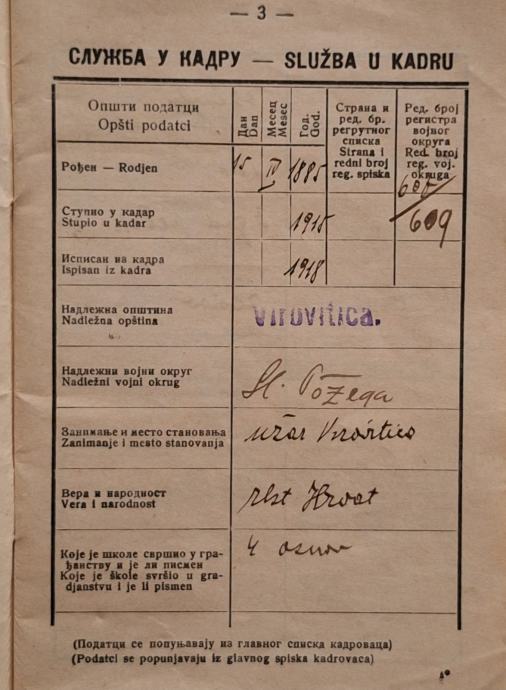 — 3 —
СЛУЖБА У КАДРУ — SLUŽBA U KADRU
Општи податци
Opšti podatci
Дан
Dan
Месец
Mesec
Год.
God.
Страна и
ред. бр.
регрутног
списка
Strana i
redni broj
reg. spiska
Ред. број
регистра
војног
округа
Red. broj
reg. voj.
okruga
Рођен — Rodjen
15
IV
1885
600/609
Ступио у кадар
Stupio u kadar
1915
Исписан из кадра
Ispisan iz kadra
1918
Надлежна општина
Nadležna opština
Virovitica.
Надлежни војни округ
Nadležni vojni okrug
Sl. Požega
Занимање и место становања
Zanimanje i mesto stanovanja
užar Virovitica
Вера и народност
Vera i narodnost
rkt Hrvat
Које је школе свршио у гра-
ђанству и је ли писмен
Koje je škole svršio u gra-
djanstvu i je li pismen
4 osnov
(Податци се попуњавају из главног списка кадроваца)
(Podatci se popunjavaju iz glavnog spiska kadrovaca)